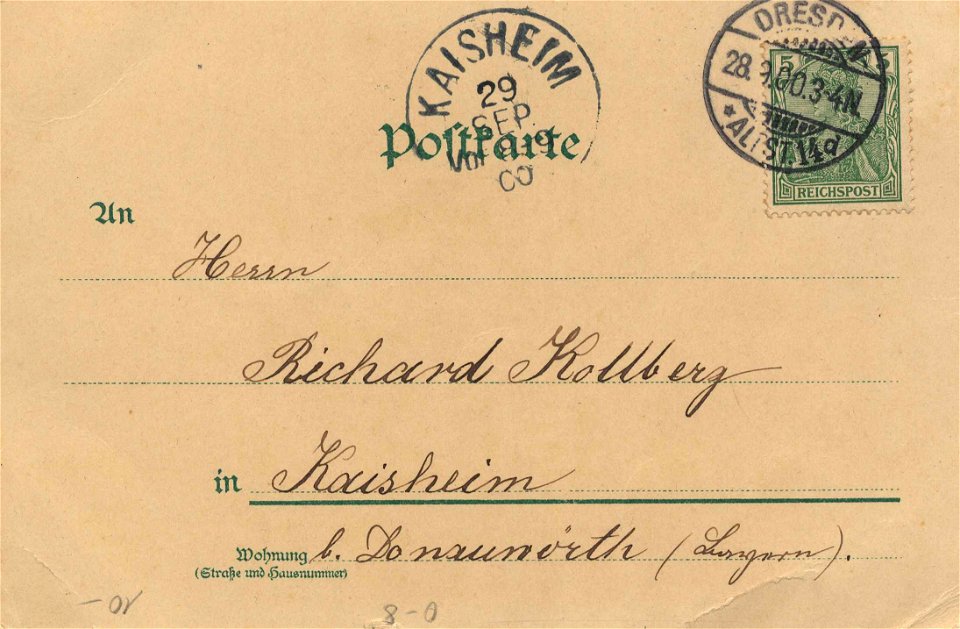 KAISHEIM
29
SEP.
Vor. 8-9
00
DRESDEN
28.9.00.3-4N.
*ALTST.14d
5 5
REICHSPOST
Postkarte
An
Herrn
Richard Kollberg
in Kaisheim
Wohnung b. Donauwörth (Bayern).
(Straße und Hausnummer)
8-0